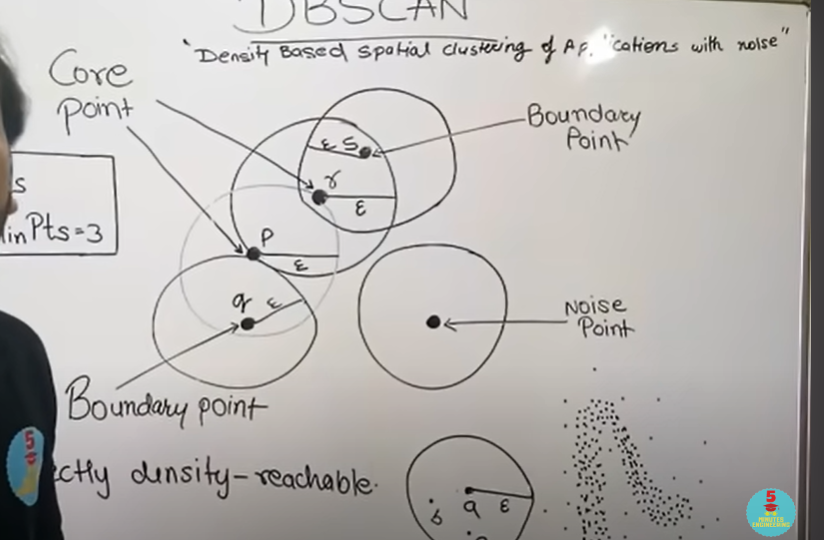 DBSCAN
"Density Based spatial clustering of with noise"
Core
point
Boundary
Point
s
ε S
r
ε
Pts=3
P
ε
q ε
Noise
Point
Boundary point
density-reachable.
q ε
5
5
MINUTES
ENGINEERING